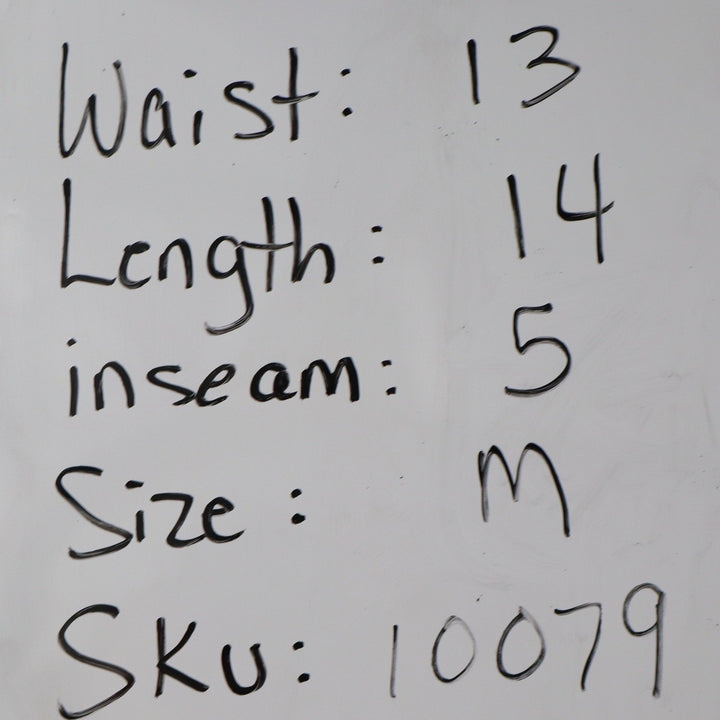 Waist: 13
Length: 14
inseam: 5
Size: M
SKU: 10079